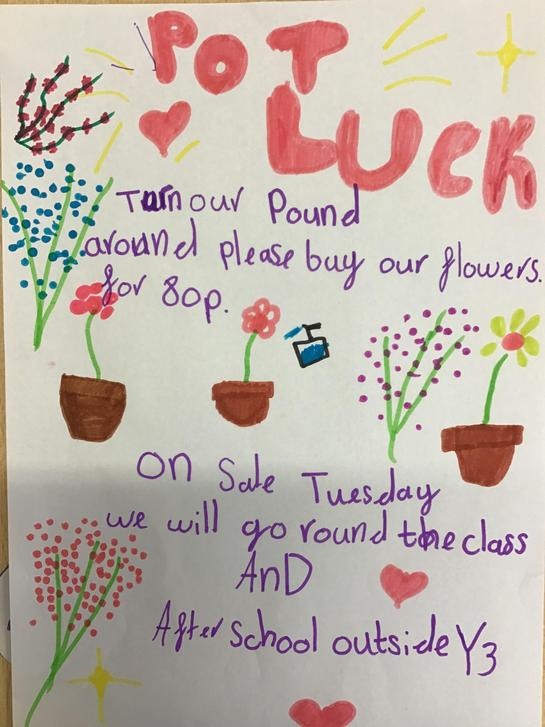 POT
LUCK
Turn our Pound
around please buy our flowers.
for 80p.
On Sale Tuesday
we will go round the class
AnD
After School outside Y3